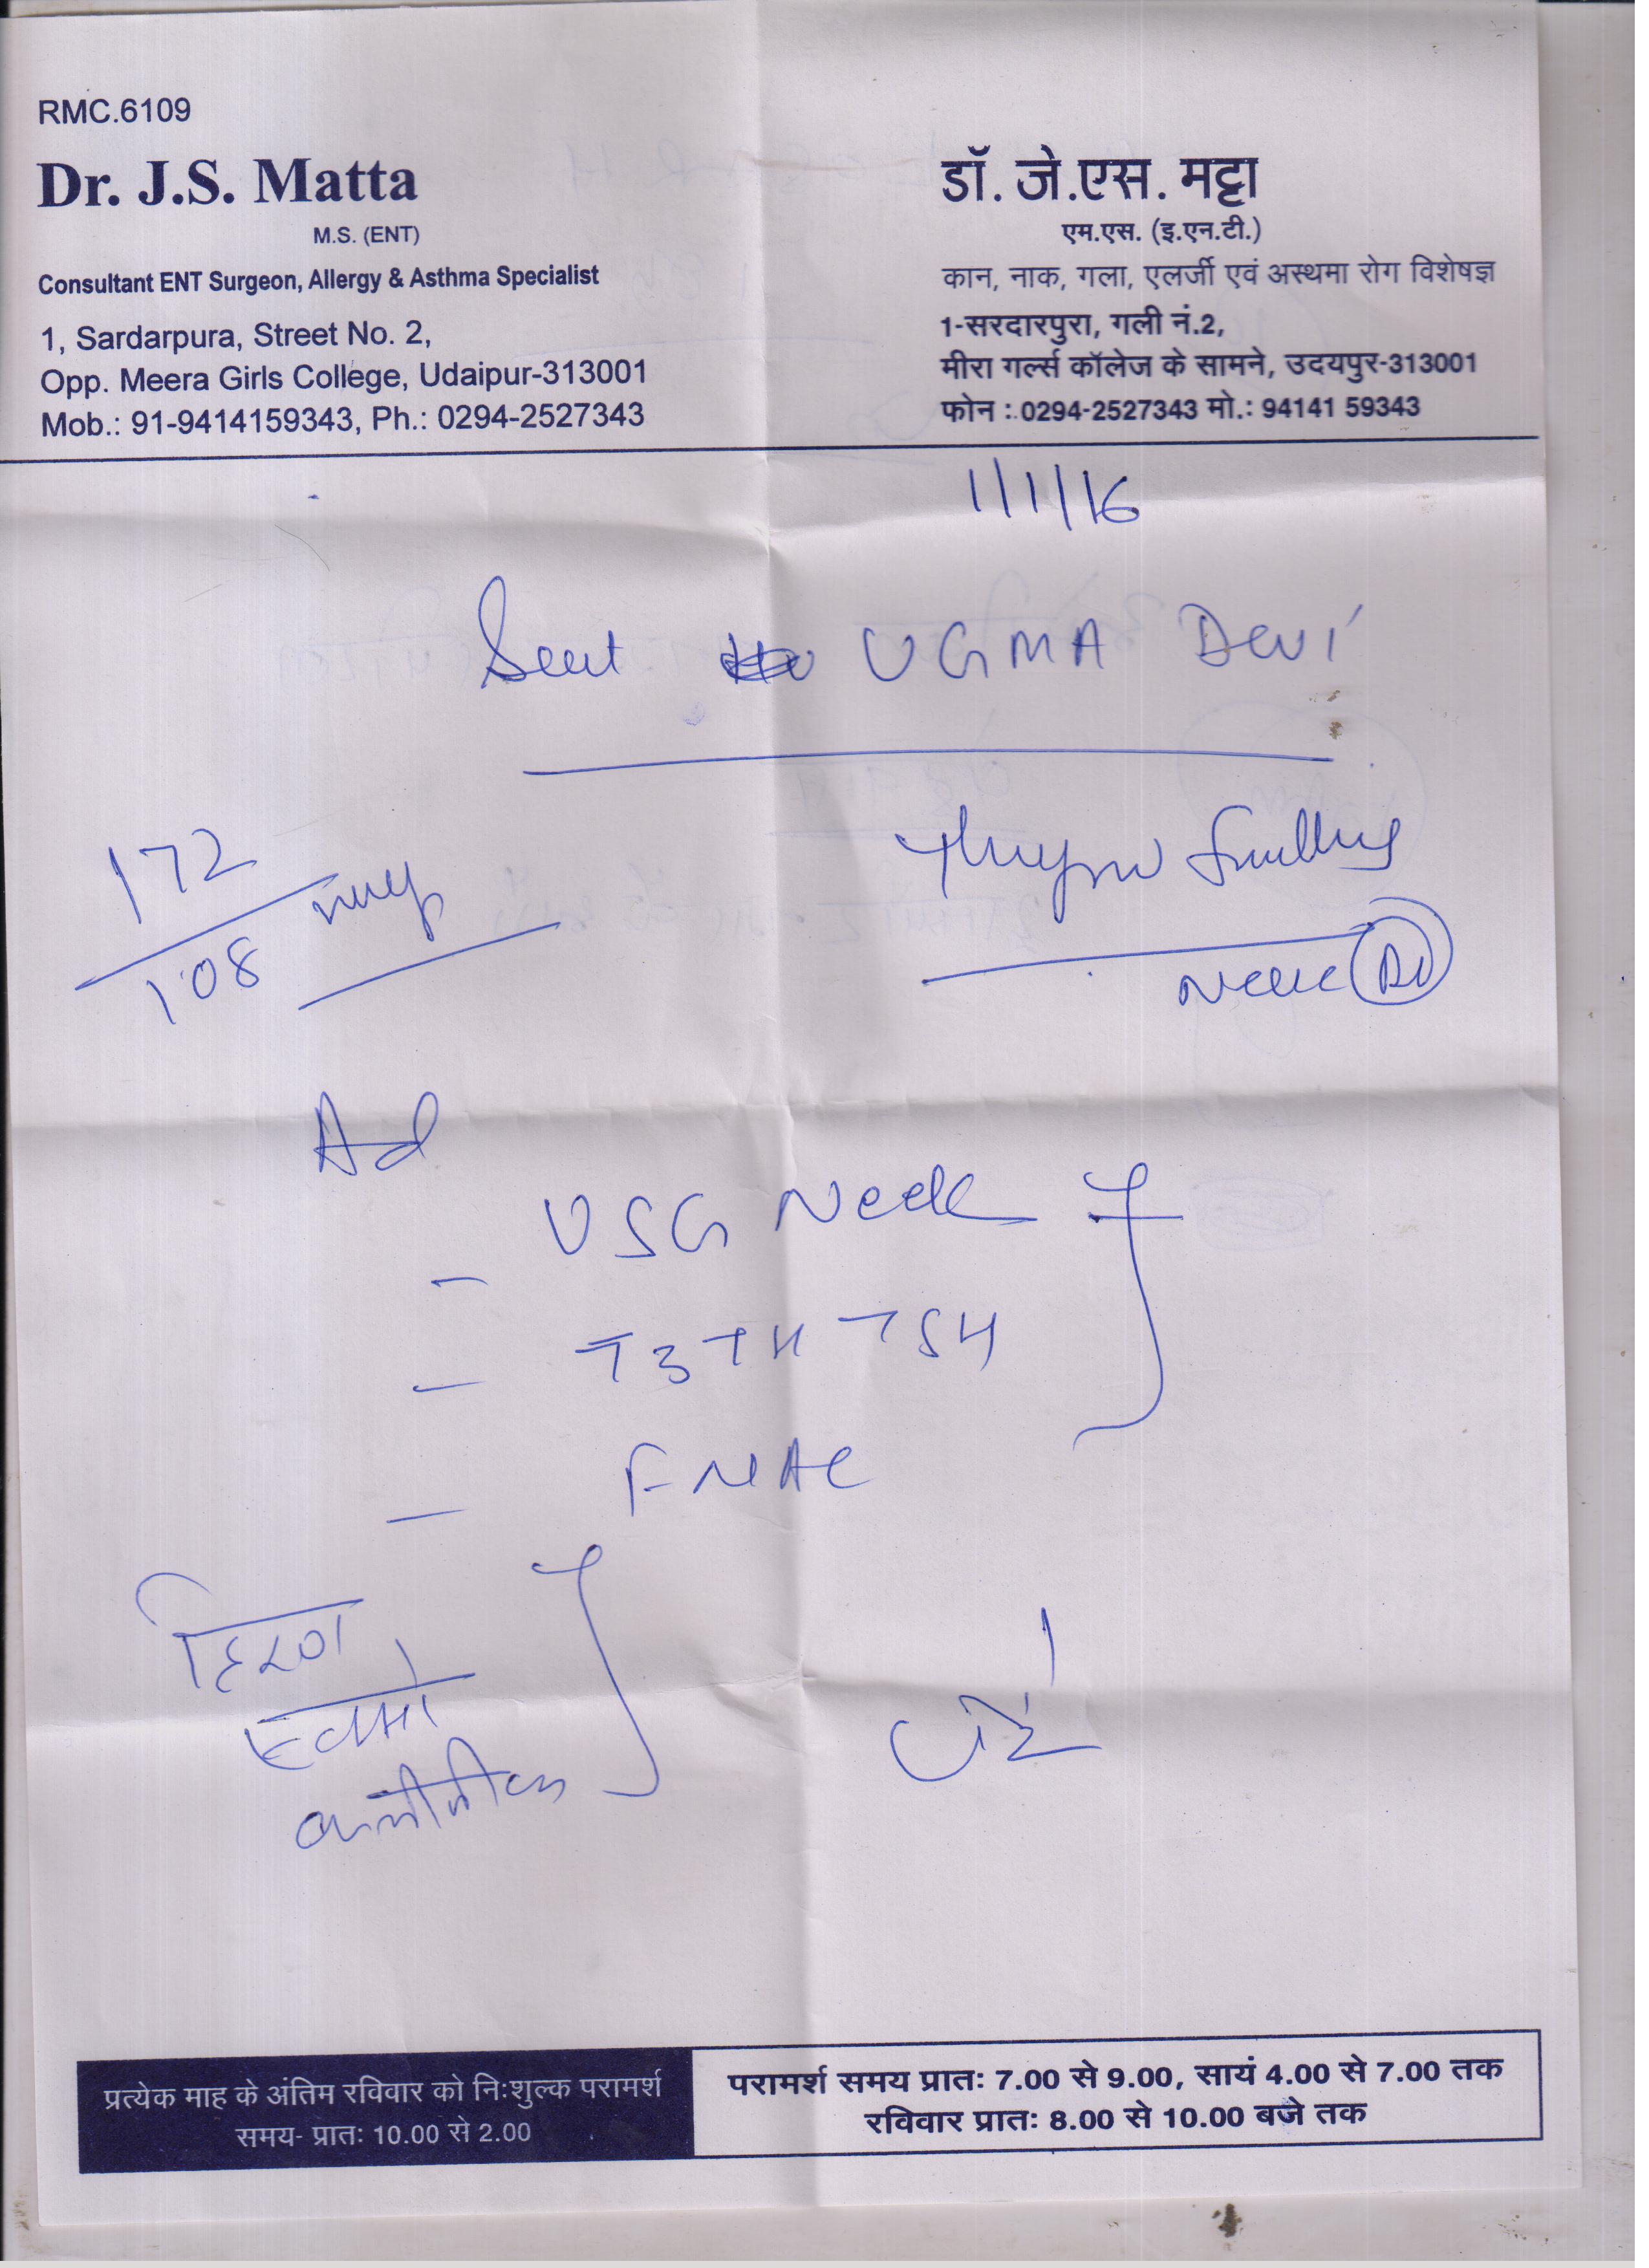 RMC.6109
Dr. J.S. Matta
M.S. (ENT)
Consultant ENT Surgeon, Allergy & Asthma Specialist
1, Sardarpura, Street No. 2,
Opp. Meera Girls College, Udaipur-313001
Mob.: 91-9414159343, Ph.: 0294-2527343
डॉ. जे.एस. मट्टा
एम.एस. (इ.एन.टी.)
कान, नाक, गला, एलर्जी एवं अस्थमा रोग विशेषज्ञ
1-सरदारपुरा, गली नं.2,
मीरा गर्ल्स कॉलेज के सामने, उदयपुर-313001
फोन : 0294-2527343 मो.: 94141 59343
1/1/16
UGMA Devi
172
108
Neck
Ad
- USG Neck
- T3 T4 TSH
- FNAC
प्रत्येक माह के अंतिम रविवार को नि:शुल्क परामर्श
समय- प्रात: 10.00 से 2.00
परामर्श समय प्रात: 7.00 से 9.00, सायं 4.00 से 7.00 तक
रविवार प्रात: 8.00 से 10.00 बजे तक